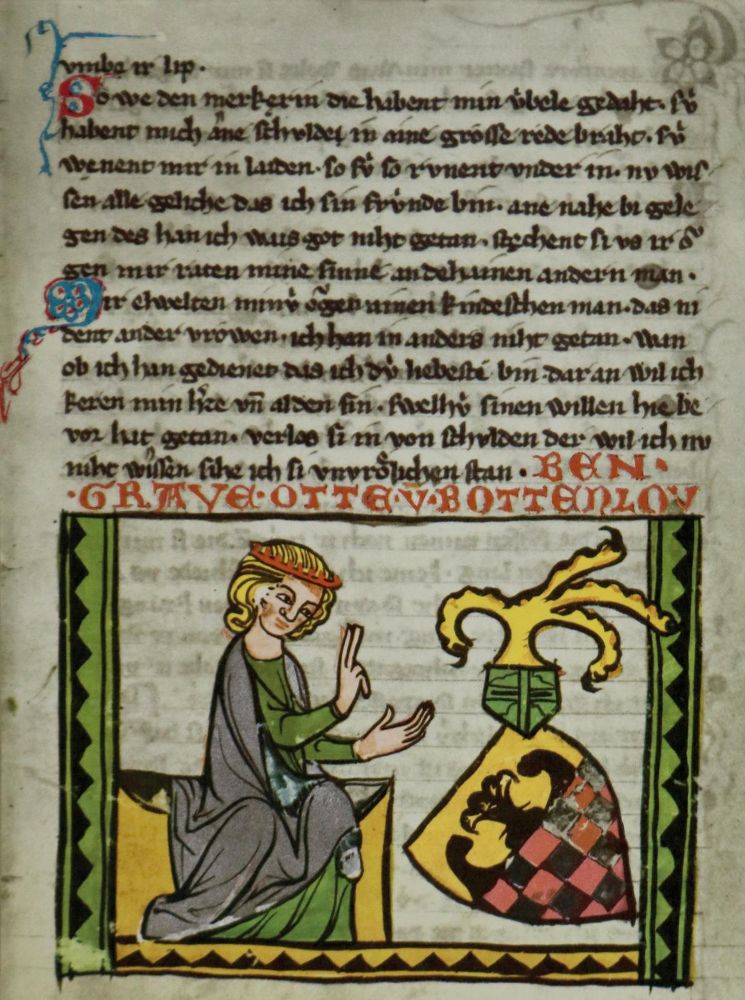 vmbe ir lip·
So we den merkerin die habent min v̊bele gedaht· sv̍
habent mich ane schvlde in aine grosse rede braht· sv̍
wenent mir in laiden· so sv̍ so rvnent vnder in· nv wis
sen alle geliche das ich sin frv̍nde bin· ane nahe bi gele
gen des han ich wais got niht getan· stechent si vs ir ǒ
gen mir raten mine sinne an dehainen andern man·
Mir erwelten minv̍ ǒgen ainen kindeschen man· das ni
dent ander vrowen· ich han in anders niht getan· wan
ob ich han gedienet das ich dv̍ liebeste bin· dar an wil ich
keren min h̾ze vn̄ al den sin· swelhv̍ sinen willen hie be
vor hat getan· verlos si in von schvlden der wil ich nv
niht wissen sihe ich si vnvrǒlichen stan· BEN·
·GRAVE·OTTE·V̊·BOTTENLOV